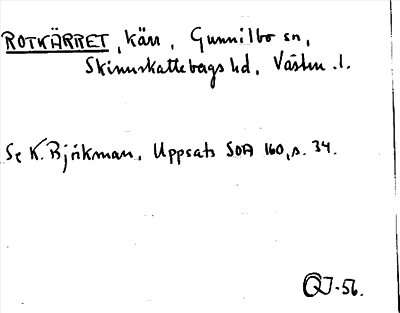 ROTKÄRRET, kärr, Gunnilbo sn,
Skinnskattebergs hd, Västm. l.
Se K. Björkman, Uppsats SOA 160, s. 34.
QJ-56.